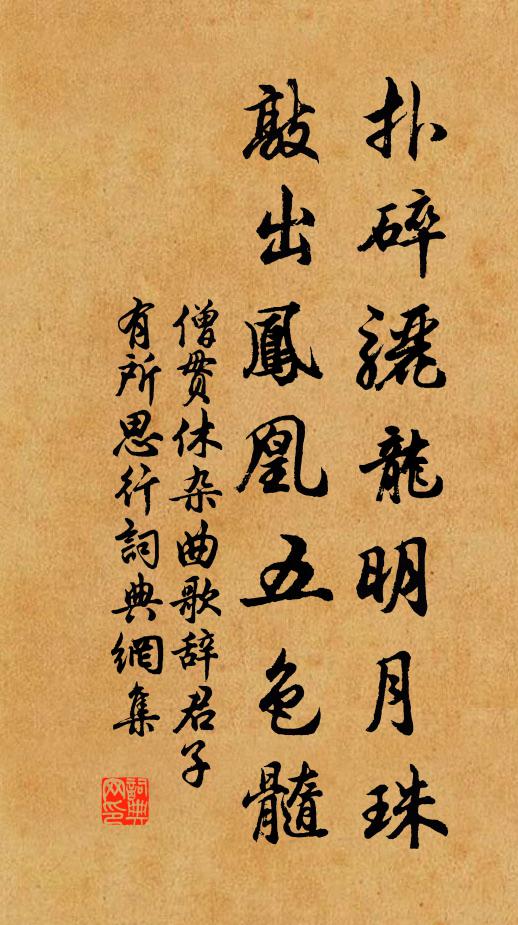 扑碎骊龍明月珠
敲出鳳凰五色髓
僧贯休杂曲歌辞君子
有所思行詞典網集
詞典
网印